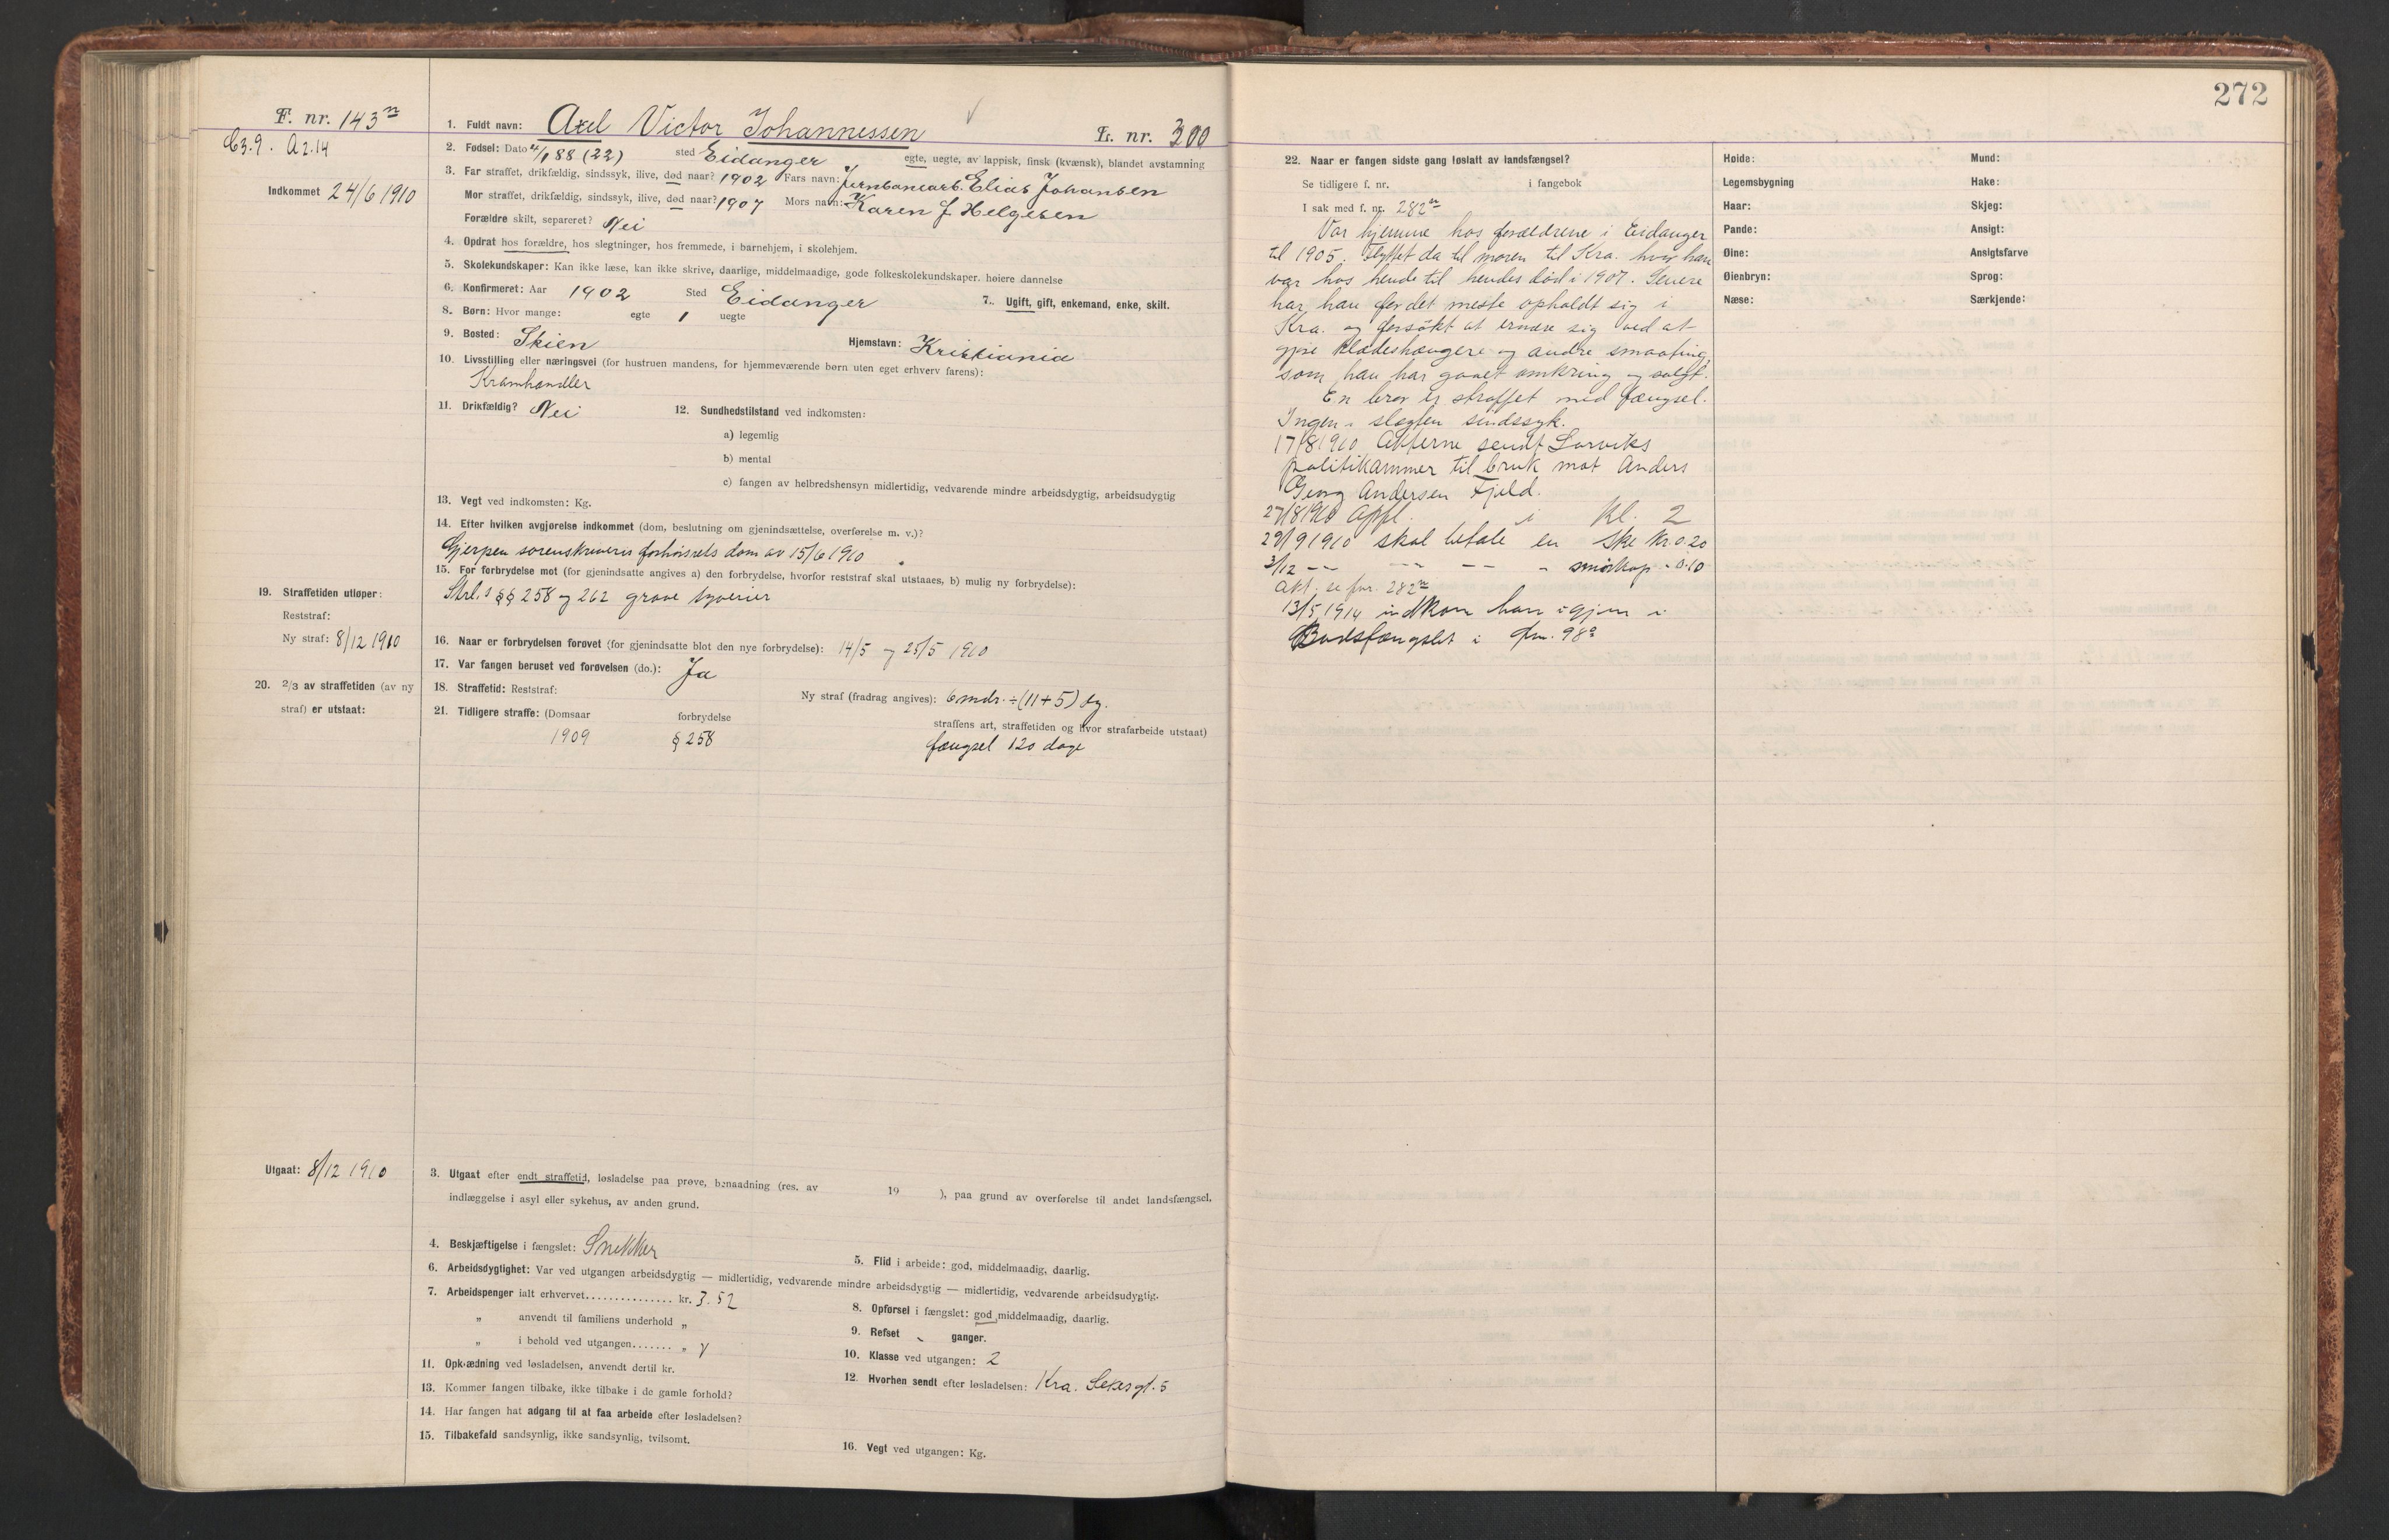 F. nr. 143 n
C3.9. A2.14
Indkommet 24/6 1910
1. Fuldt navn: Axel Victor Johannessen L. nr. 300
2. Fødsel: Dato 4/1 88 (22) sted Eidanger egte, uegte, av lappisk, finsk (kvænsk), blandet avstamning
3. Far straffet, drikfældig, sindssyk, ilive, død naar? 1902 Fars navn: Jernbanearb. Elias Johansen
Mor straffet, drikfældig, sindssyk, ilive, død naar? 1907 Mors navn: Karen J Helgesen
Forældre skilt, separeret? Nei
4. Opdrat hos forældre, hos slegtninger, hos fremmede, i barnehjem, i skolehjem.
5. Skolekundskaper: Kan ikke læse, kan ikke skrive, daarlige, middelmaadige, gode folkeskolekundskaper. høiere dannelse
6. Konfirmeret: Aar 1902 Sted Eidanger 7. Ugift, gift, enkemand, enke, skilt.
8. Børn: Hvor mange: egte 1 uegte
9. Bosted: Skien Hjemstavn: Kristiania
10. Livsstilling eller næringsvei (for hustruen mandens, for hjemmeværende børn uten eget erhverv farens):
Kramhandler
11. Drikfældig? Nei 12. Sundhedstilstand ved indkomsten:
a) legemlig
b) mental
c) fangen av helbredshensyn midlertidig, vedvarende mindre arbeidsdygtig, arbeidsudygtig
13. Vegt ved indkomsten: Kg.
14. Efter hvilken avgjørelse indkommet (dom, beslutning om gjenindsættelse, overførelse m. v.)?
Gjerpen sorenskriveris forhørsrets dom av 15/6 1910
15. For forbrydelse mot (for gjenindsatte angives a) den forbrydelse, hvorfor reststraf skal utstaaes, b) mulig ny forbrydelse):
Strl.s §§ 258 og 262 grove tyverier
19. Straffetiden utløper:
Reststraf:
Ny straf: 8/12 1910
16. Naar er forbrydelsen forøvet (for gjenindsatte blot den nye forbrydelse): 14/5 og 25/5 1910
17. Var fangen beruset ved forøvelsen (do.): Ja
20. 2/3 av straffetiden (av ny
straf) er utstaat:
18. Straffetid: Reststraf: Ny straf (fradrag angives): 6 mdr. ÷ (11+5) dg.
21. Tidligere straffe: (Domsaar forbrydelse straffens art, straffetiden og hvor strafarbeide utstaat)
1909 § 258 fængsel 120 dage
Utgaat: 8/12 1910
3. Utgaat efter endt straffetid, løsladelse paa prøve, benaadning (res. av 19 ), paa grund av overførelse til andet landsfængsel,
indlæggelse i asyl eller sykehus, av anden grund.
4. Beskjæftigelse i fængslet: Snekker
5. Flid i arbeide: god, middelmaadig, daarlig.
6. Arbeidsdygtighet: Var ved utgangen arbeidsdygtig — midlertidig, vedvarende mindre arbeidsdygtig — midlertidig, vedvarende arbeidsudygtig.
7. Arbeidspenger ialt erhvervet............... kr. 3.52
8. Opførsel i fængslet: god, middelmaadig, daarlig.
„ anvendt til familiens underhold „
9. Refset ganger.
„ i behold ved utgangen....... „
10. Klasse ved utgangen: 2
11. Opklædning ved løsladelsen, anvendt dertil kr.
12. Hvorhen sendt efter løsladelsen: Kra.
13. Kommer fangen tilbake, ikke tilbake i de gamle forhold?
14. Har fangen hat adgang til at faa arbeide efter løsladelsen?
15. Tilbakefald sandsynlig, ikke sandsynlig, tvilsomt.
16. Vegt ved utgangen: Kg.
272
22. Naar er fangen sidste gang løslatt av landsfængsel?
Se tidligere f. nr. i fangebok
I sak med f. nr. 282 n
Var hjemme hos forældrene i Eidanger
til 1905. Flyttet da til moren til Kra. hvor han
var hos hende til hendes død i 1907. Senere
har han for det meste opholdt sig i
Kra. og forsøkt at ernære sig ved at
gjøre klædeshængere og andre smaating,
som han har gaaet omkring og solgt.
En bror er straffet med fængsel.
Ingen i slægten sindssyk.
17/8 1910 Akterne sendt Larviks
politikammer til bruk mot Anders
Georg Andersen Fjeld.
27/8 1910 Opfl. i Kl. 2
29/9 1910 skal betale en ske kr. 0.20
3/12 -- -- -- - smørkop - 0.10
Akt: se fnr. 282 n
13/5 1914 indkom han igjen i
Bodsfængslet i fnr. 98
Høide: Mund:
Legemsbygning Hake:
Haar: Skjeg:
Pande: Ansigt:
Øine: Ansigtsfarve
Øienbryn: Sprog:
Næse: Særkjende: